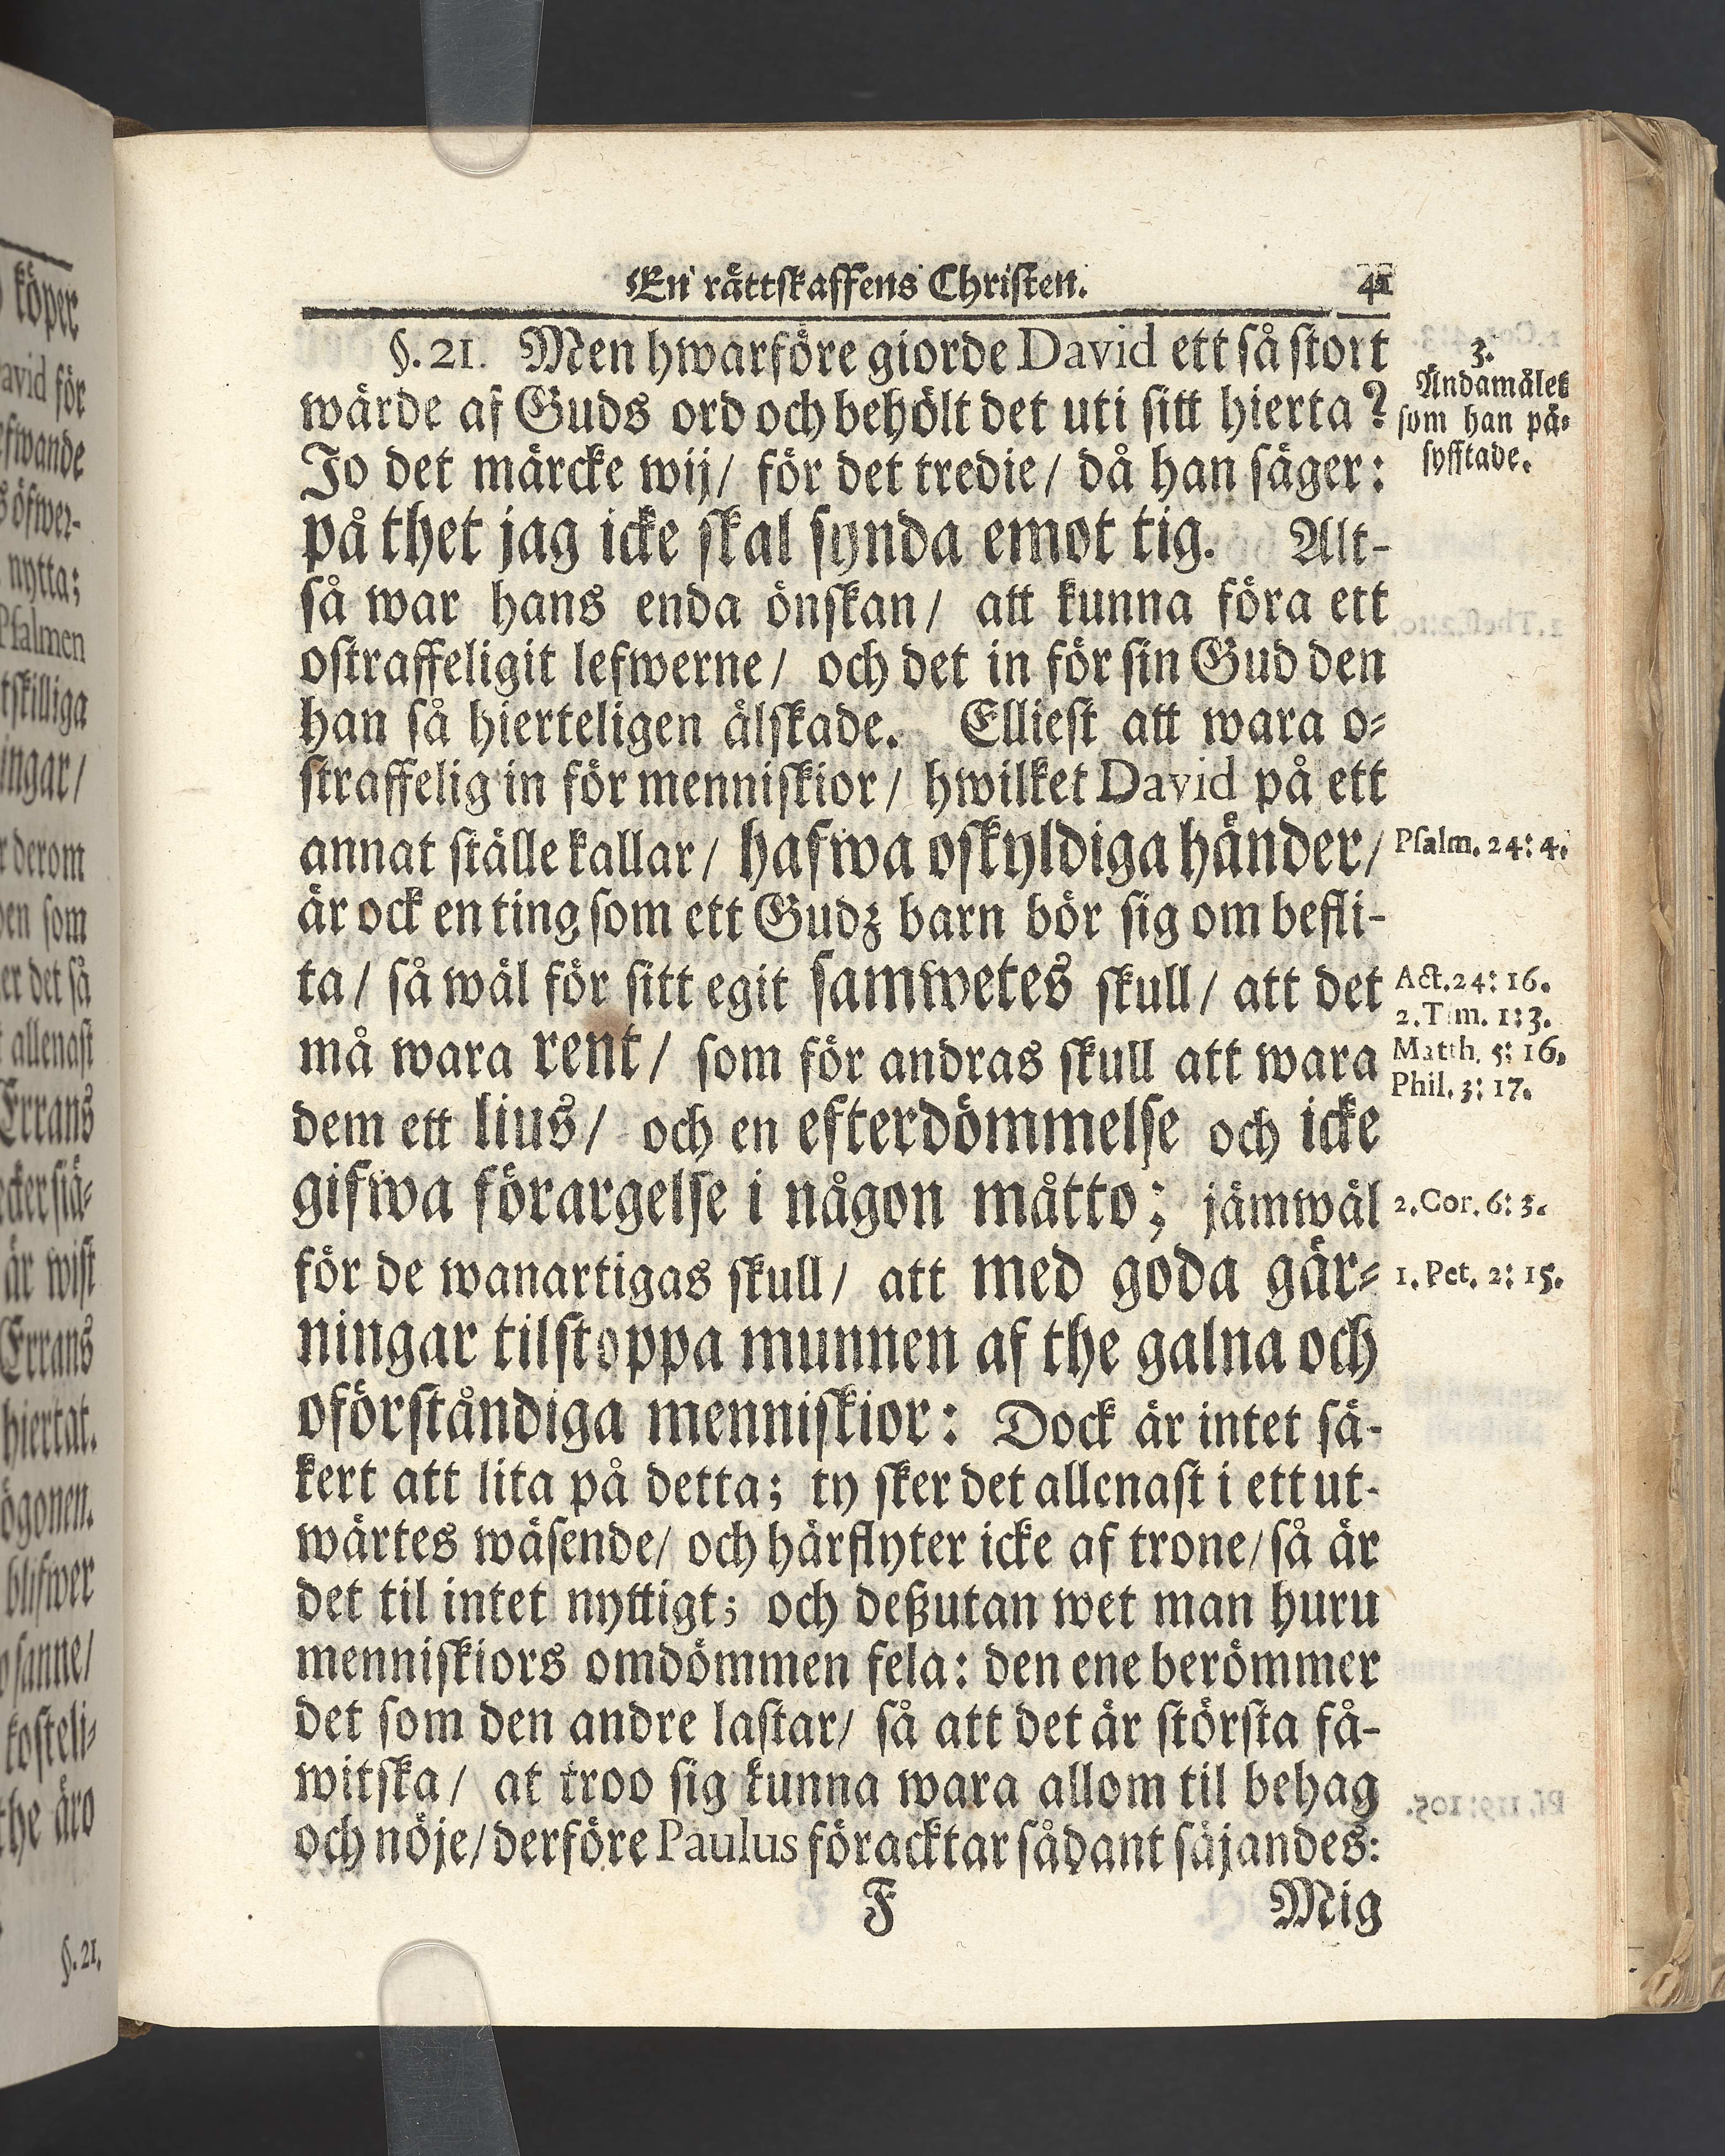 köper
avid för
efwande
s öfwer-
nytta;
Psalmen
tskilliga
ingar/
r derom
en som
er det så
allenast
Errans
ecker siä-
är wist
Errans
hiertat.
ögonen.
blifwer
sanne/
kosteli-
the äro
§. 21.
En rättskaffens Christen. 41
§. 21. Men hwarföre giorde David ett så stort
wärde af Guds ord och behölt det uti sitt hierta?
Jo det märcke wij/ för det tredie/ då han säger:
på thet jag icke skal synda emot tig. Alt-
så war hans enda önskan/ att kunna föra ett
ostraffeligit lefwerne/ och det in för sin Gud den
han så hierteligen älskade. Elliest att wara o-
straffelig in för menniskior/ hwilket David på ett
annat ställe kallar/ hafwa oskyldiga händer/
är ock en ting som ett Gudz barn bör sig om befli-
ta/ så wäl för sitt egit samwetes skull/ att det
må wara rent/ som för andras skull att wara
dem ett lius/ och en efterdömmelse och icke
gifwa förargelse i någon måtto; jämwäl
för de wanartigas skull/ att med goda gär-
ningar tilstoppa munnen af the galna och
oförståndiga menniskior: Dock är intet sä-
kert att lita på detta; ty sker det allenast i ett ut-
wärtes wäsende/ och härflyter icke af trone/ så är
det til intet nyttigt; och deßutan wet man huru
menniskiors omdömmen fela: den ene berömmer
det som den andre lastar/ så att det är största få-
witska/ at troo sig kunna wara allom til behag
och nöje/ derföre Paulus föracktar sådant säjandes:
F Mig
3.
Ändamålet
som han på-
syfftade.
Psalm. 24: 4.
Act. 24: 16.
2. Tim. 1: 3.
Matth. 5: 16.
Phil. 3: 17.
2. Cor. 6: 3.
1. Pet. 2: 15.